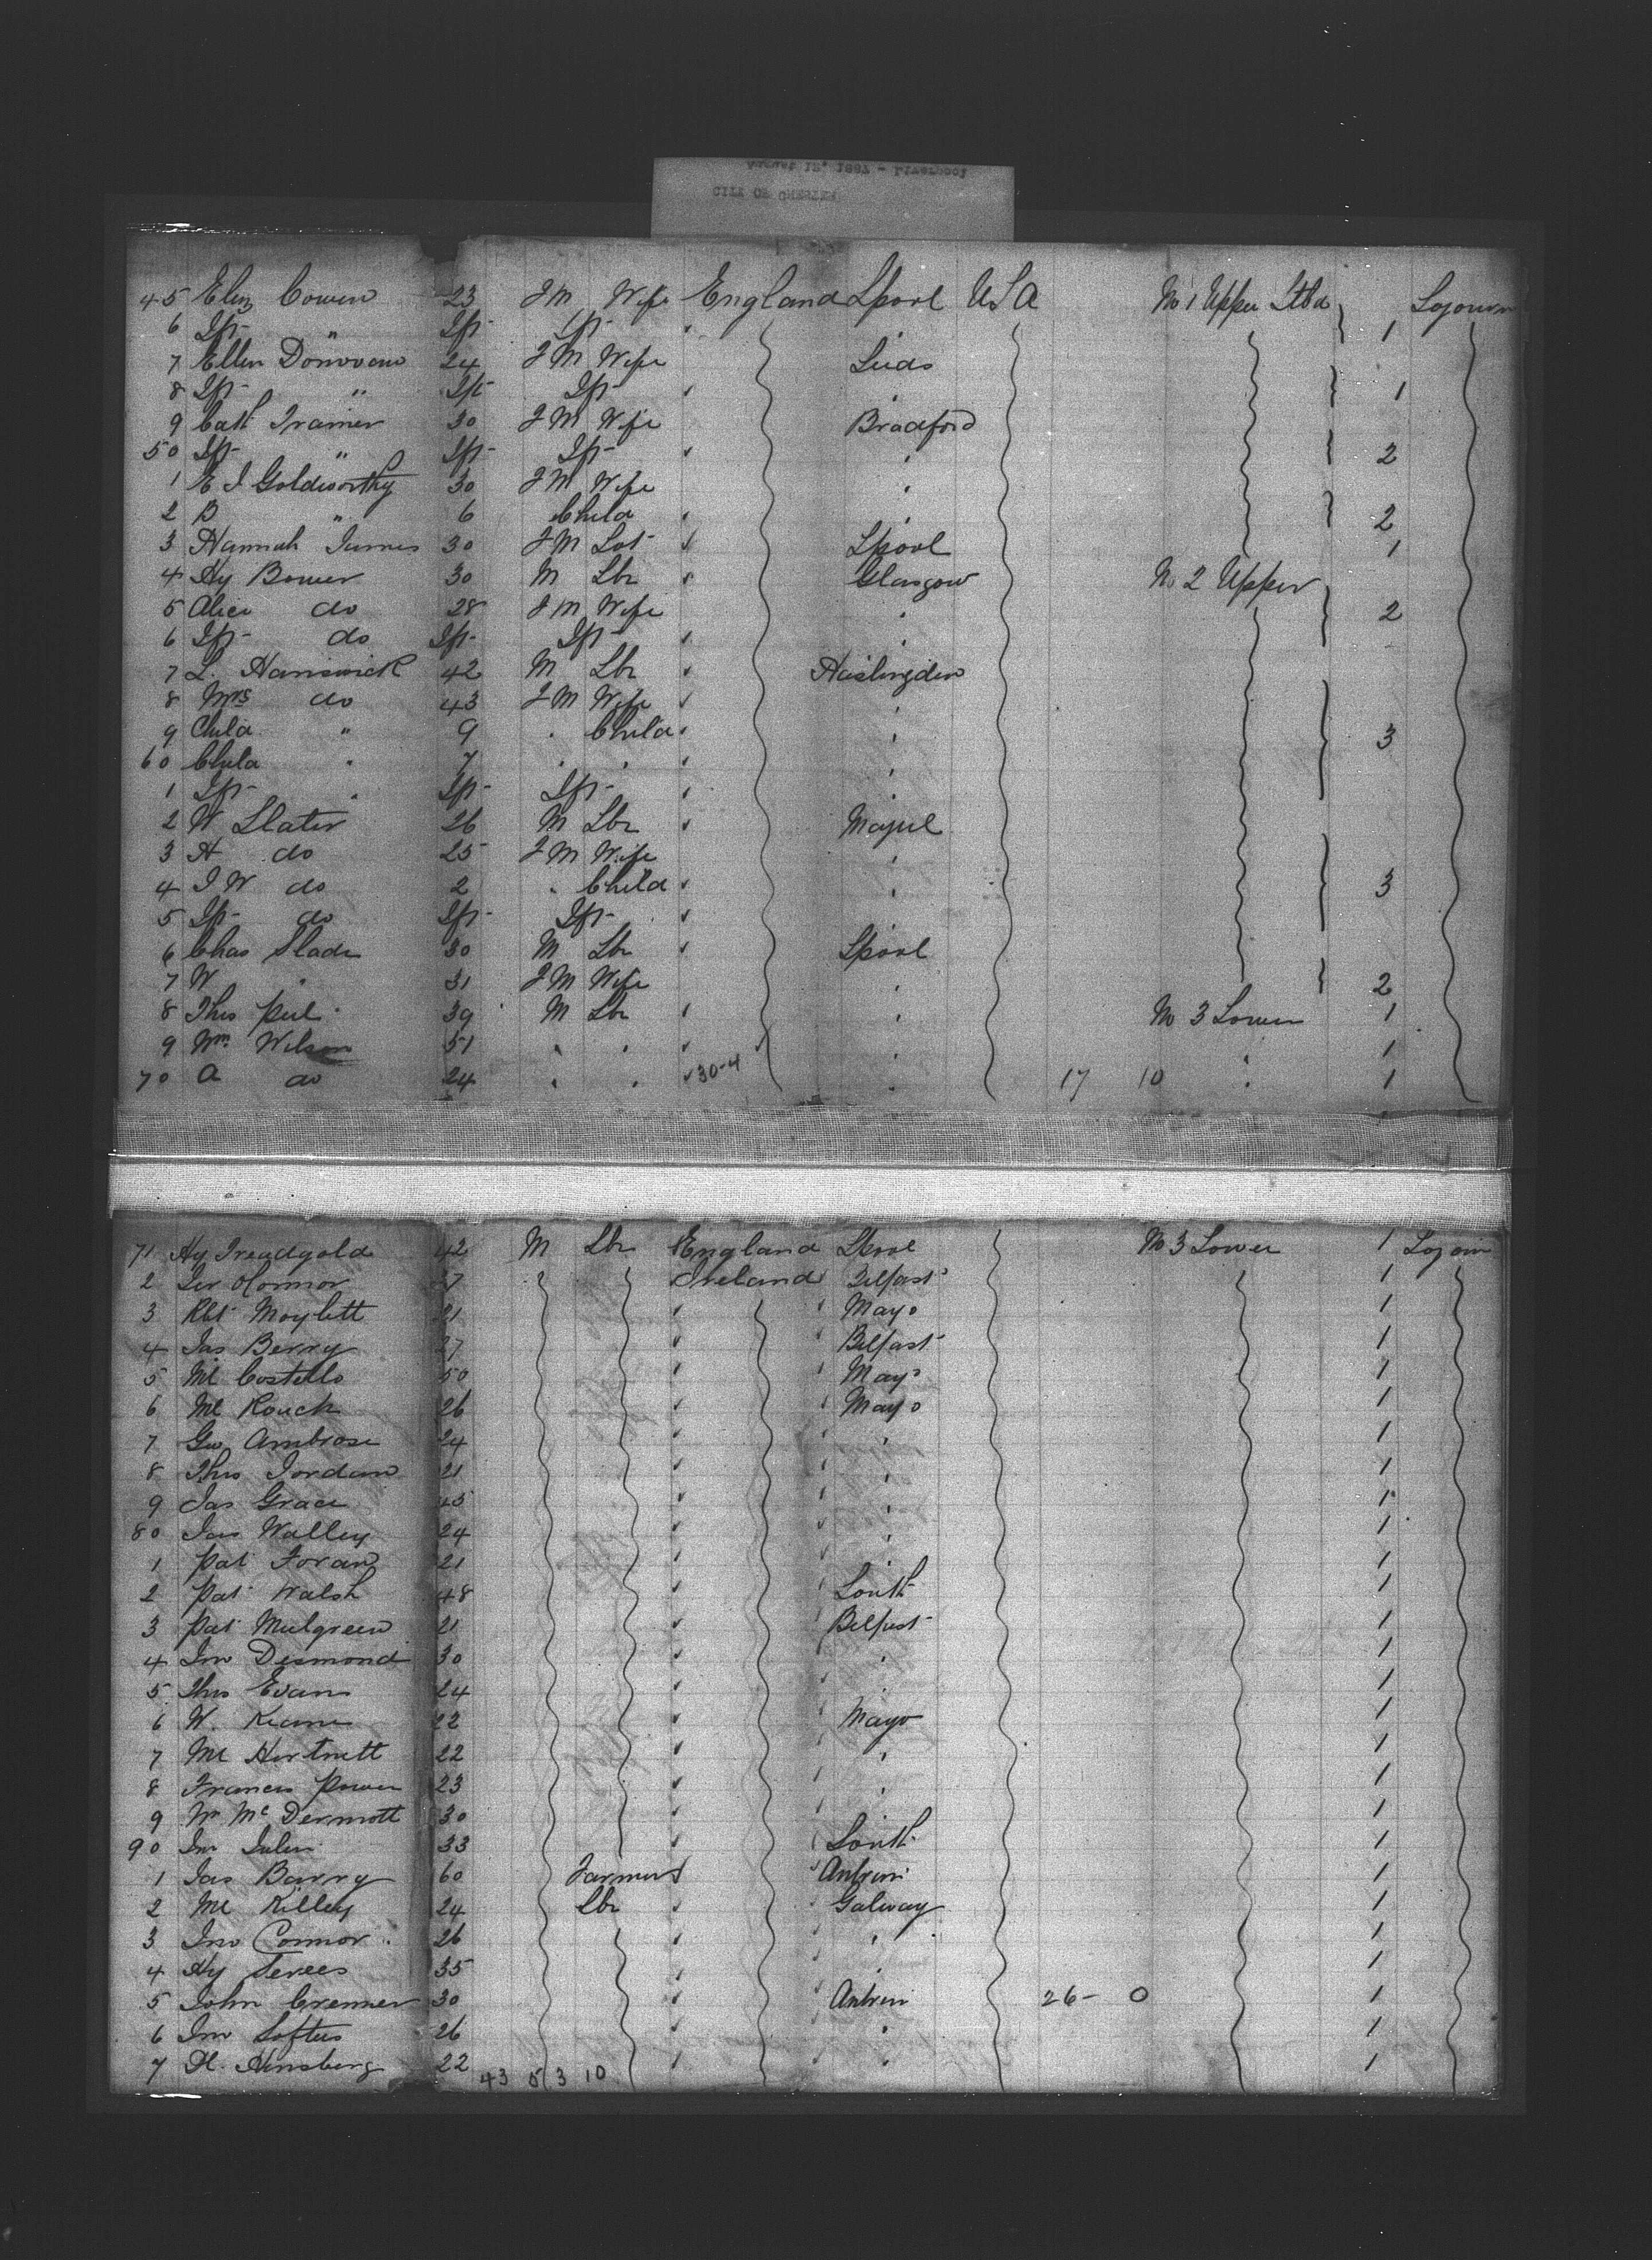 August 12, 1887 - Liverpool
CITY OF CHESTER
45 Eliz Cowen 23 F M Wife England Lpool U S A No 1 Upper Stbd Sojourn
6 Ift " Ift Ift 1
7 Ellen Donovan 24 F M Wife Leeds
8 Ift " Ift Ift 1
9 Cath Trainer 30 F M Wife Bradford
50 Ift " Ift Ift " 2
1 E J Goldsworthy 30 F M Wife "
2 B " 6 Child " 2
3 Hannah James 30 F M Lpool 1
4 Hy Bower 30 M Lbr Glasgow No 2 Upper
5 Alice do 28 F M Wife " 2
6 Ift do Ift Ift "
7 L. Hanswick 42 M Lbr Haslingden
8 Mrs do 43 F M Wife "
9 Child " 9 " Child " 3
60 Child " 7 " " "
1 Ift " Ift Ift
2 W Slater 26 M Lbr
3 A do 25 F M Wife "
4 J W do 2 " Child " 3
5 Ift do Ift Ift
6 Chas Slade 30 M Lbr Lpool
7 W " 31 F M Wife " 2
8 Thos Peel 39 M Lbr " No 3 Lower 1
9 Wm Wilson 51 " " " " 1
70 A do 24 " " 30-4 " 17 10 " 1
71 Hy Treadgold 42 M Lbr England Lpool No 3 Lower 1 Sojourn
2 Jer OConnor 27 Ireland Belfast 1
3 Rbt Moylett 21 Mayo 1
4 Jas Berry 27 Belfast 1
5 Ml Costello 50 Mayo 1
6 Ml Rouch 26 Mayo 1
7 Geo Ambrose 24 " 1
8 Thos Jordan 21 " 1
9 Jas Grace 45 " 1
80 Jas Walley 24 " 1
1 Pat Foran 21 1
2 Pat Walsh 48 Louth 1
3 Pat Mulgreen 21 Belfast 1
4 Jno Desmond 30 " 1
5 Thos Evans 24 " 1
6 W. Keane 22 Mayo 1
7 Ml Hartnett 22 " 1
8 Francis Power 23 " 1
9 Wm McDermott 30 1
90 Jno 33 Louth 1
1 Jas Barry 60 Farmer Antrim 1
2 Ml Killey 24 Lbr Galway 1
3 Jno Connor 26 " 1
4 Hy Terees 35 " 1
5 John Cremner 30 Antrim 26 - 0 1
6 Jno Loftus 26 " 1
7 H. Ainsberg 22 " 1
43 5 3 10